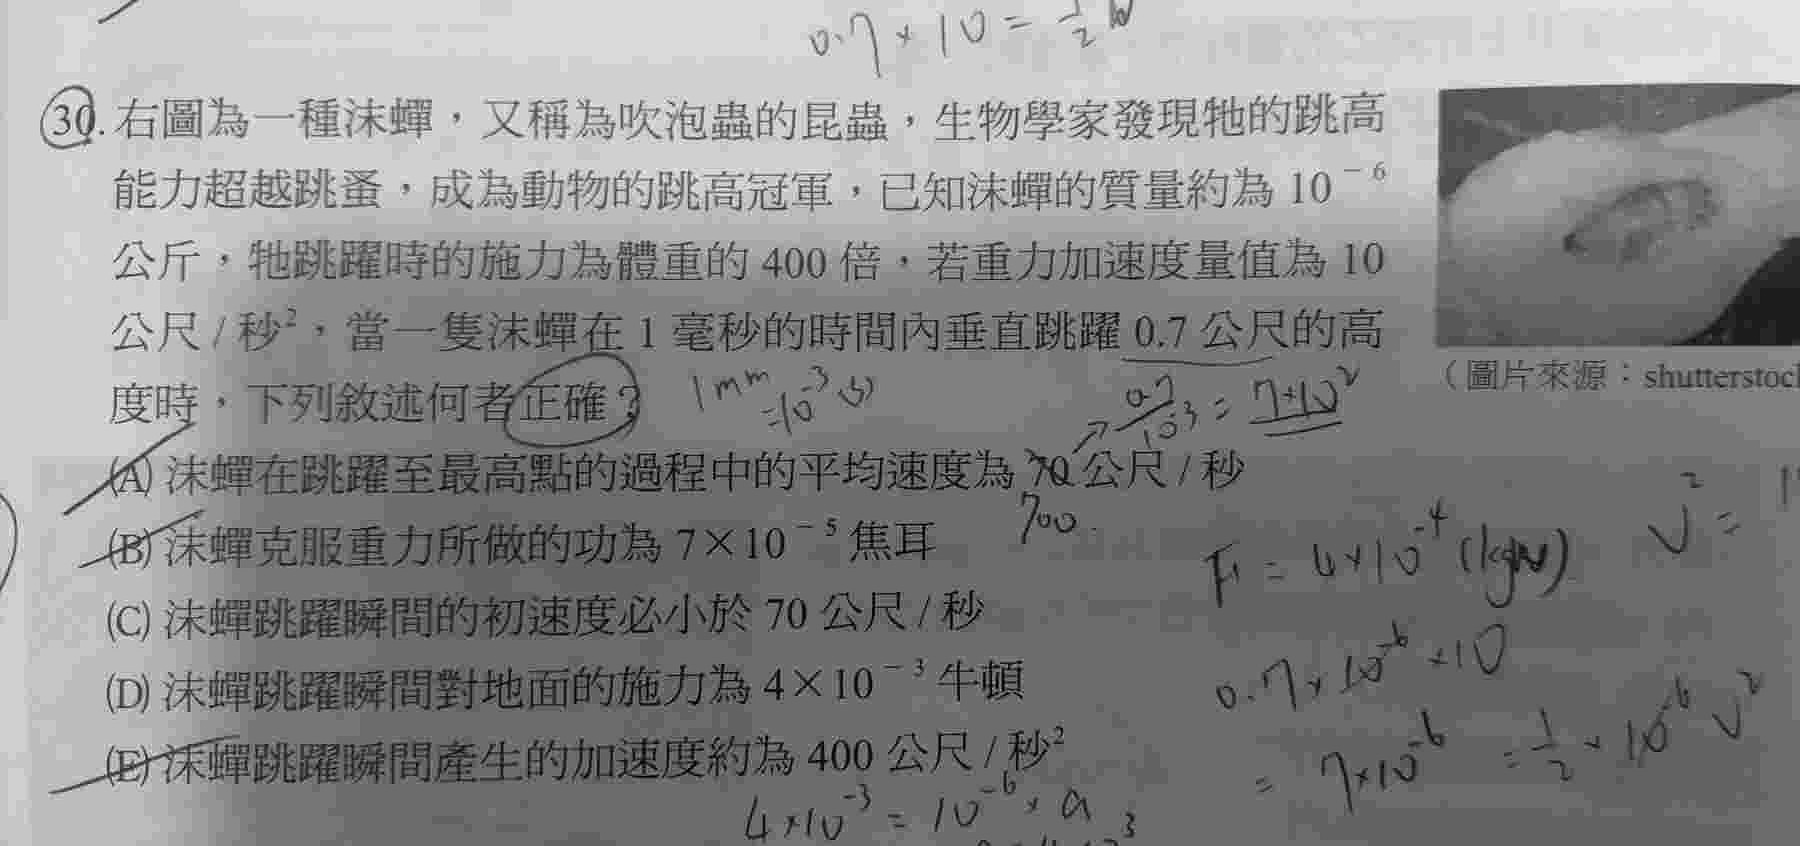 0.7 × 10 = 1/2
30. 右圖為一種沫蟬，又稱為吹泡蟲的昆蟲，生物學家發現牠的跳高
能力超越跳蚤，成為動物的跳高冠軍，已知沫蟬的質量約為 10⁻⁶
公斤，牠跳躍時的施力為體重的 400 倍，若重力加速度量值為 10
公尺 / 秒²，當一隻沫蟬在 1 毫秒的時間內垂直跳躍 0.7 公尺的高
（圖片來源：shutterstoc
度時，下列敘述何者正確？
1mm
=10⁻³(s)
0.7/10⁻³ = 7×10²
(A) 沫蟬在跳躍至最高點的過程中的平均速度為 70 公尺 / 秒
700
(B) 沫蟬克服重力所做的功為 7×10⁻⁵ 焦耳
F = 4×10⁻⁴ (kgw)
V² =
(C) 沫蟬跳躍瞬間的初速度必小於 70 公尺 / 秒
0.7×10⁻⁶×10
(D) 沫蟬跳躍瞬間對地面的施力為 4×10⁻³ 牛頓
= 7×10⁻⁶ = 1/2 × 10⁻⁶ V²
(E) 沫蟬跳躍瞬間產生的加速度約為 400 公尺 / 秒²
4×10⁻³ = 10⁻⁶ × a